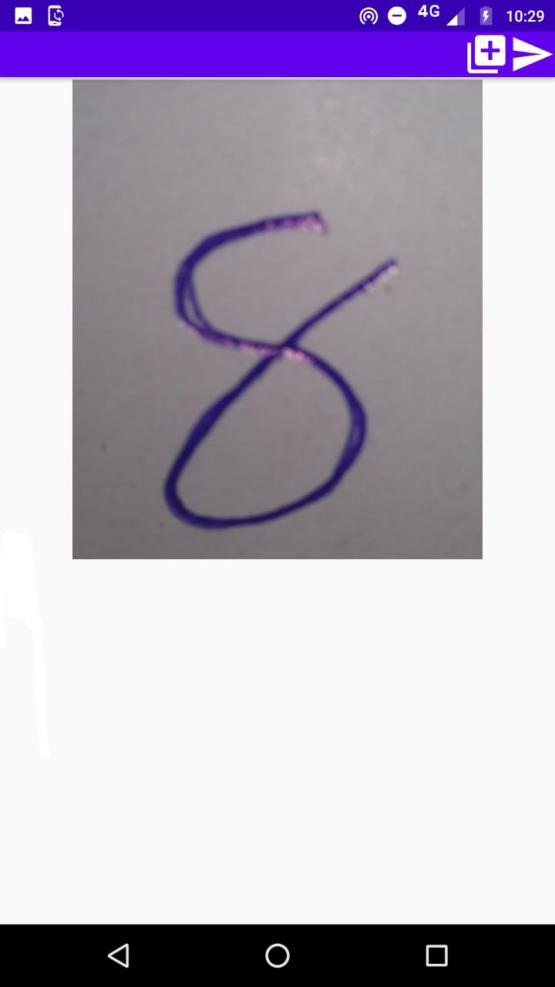 4G 10:29
8